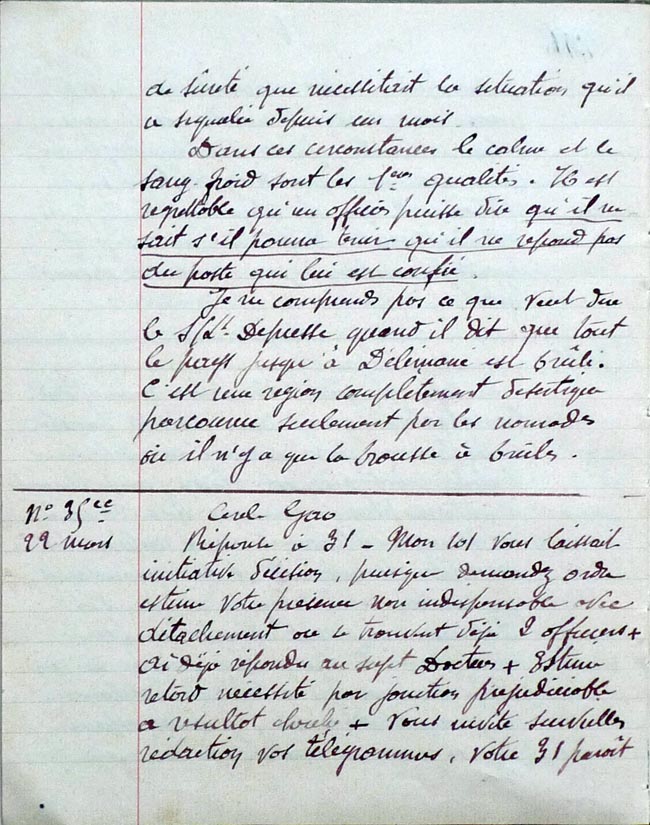 de sûreté que nécessitait la situation qu'il
a signalée depuis un mois.
Dans ces circonstances le calme et le
sang-froid sont les 1ères qualités. Il est
regrettable qu'un officier puisse dire qu'il ne
sait s'il pourra tenir qu'il ne répond pas
du poste qui lui est confié.
Je ne comprends pas ce que veut dire
le S/Lt Depresse quand il dit que tout
le pays jusqu'à Délimane est brûlé.
C'est une région complètement desertique
parcourue seulement par les nomades
où il n'y a que la brousse à brûler.
N° 35 cc
Cercle Gao
22 mars
Réponse à 31 - Mon 101 vous laissait
initiative décision, puisque demandez ordre
estime votre présence non indispensable avec
détachement où se trouvent déjà 2 officiers +
ai déjà répondu au sujet Docteur + Estime
retard nécessité par jonction préjudiciable
a resultat cherché + Vous invite surveiller
rédaction vos télégrammes, votre 31 paraît